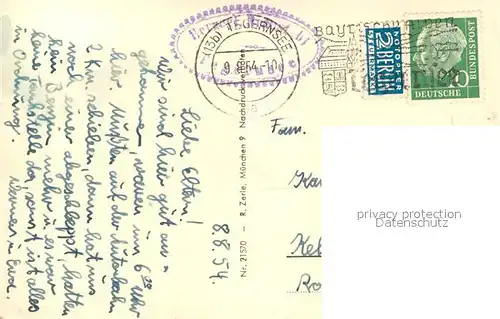 (13b) TEGERNSEE
9.8.54-10
NOTOPFER
2 BERLIN
STEUERMARKE
DEUTSCHE
BUNDESPOST
10
Liebe Eltern!
Wir sind hier gut an-
gekommen, waren um 6⁰⁰ Uhr
hier. Mußten auf der Autobahn
2 Km schieben, dann hat uns
noch einer abgeschleppt, hatten
kein Benzin mehr u. es war
keine Tankstelle da, sonst ist alles
in Ordnung.
u. Eva.
8.8.54.
Nr. 21570 – R. Zerle, München 9 Nachdruck verboten
Fam.
Ka
privacy protection
Datenschutz
Ke
Ro